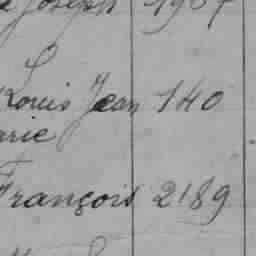 Joseph 1907
Louis Jean 140
arie
François 2189